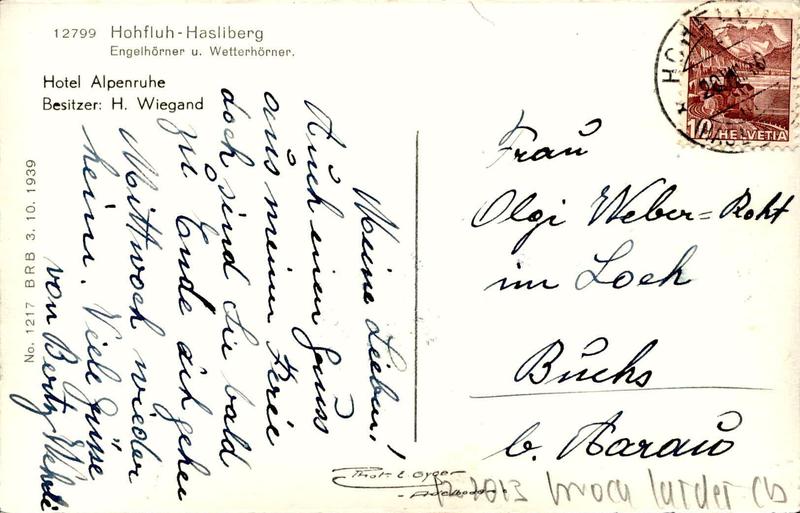 12799 Hohfluh-Hasliberg
Engelhörner u. Wetterhörner.
Hotel Alpenruhe
Besitzer: H. Wiegand
No. 1217 BRB 3. 10. 1939
Meine Lieben!
Auch einen Gruss
aus meinen Ferien
doch sind sie bald
zu Ende ich gehe
Mittwoch wieder
heim. Viele Grüsse
von Berty Wehrli
HELVETIA
10
Frau
Olgi Weber=Roht
im Loch
Buchs
b. Aarau
Phot. L. Gyger
- Adelboden -